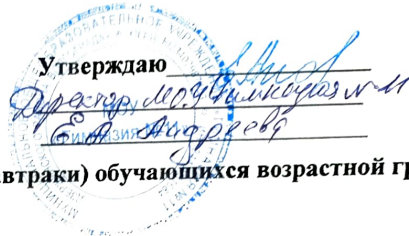 Утверждаю
Директор МОУ Гимназия №11
Е А Андреева
втраки) обучающихся возрастной гр